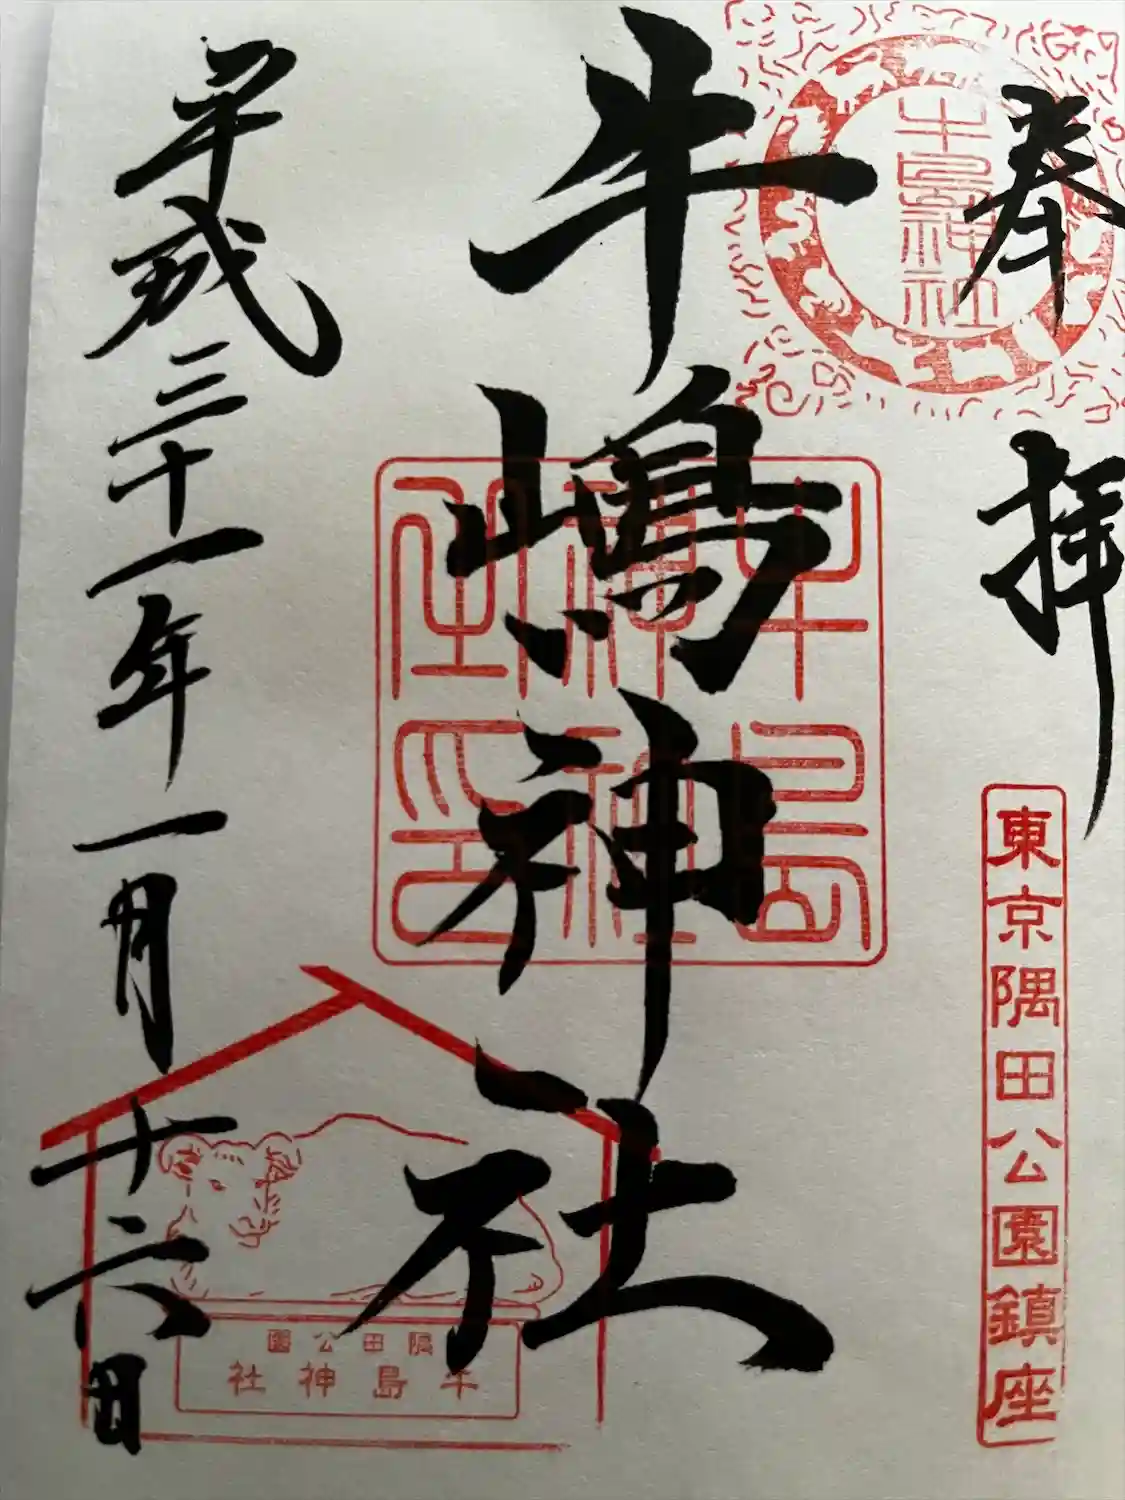 奉拝
牛島神社
東京隅田公園鎮座
牛嶋神社
牛島神社社印
平成三十一年一月十六日
隅田公園
牛島神社